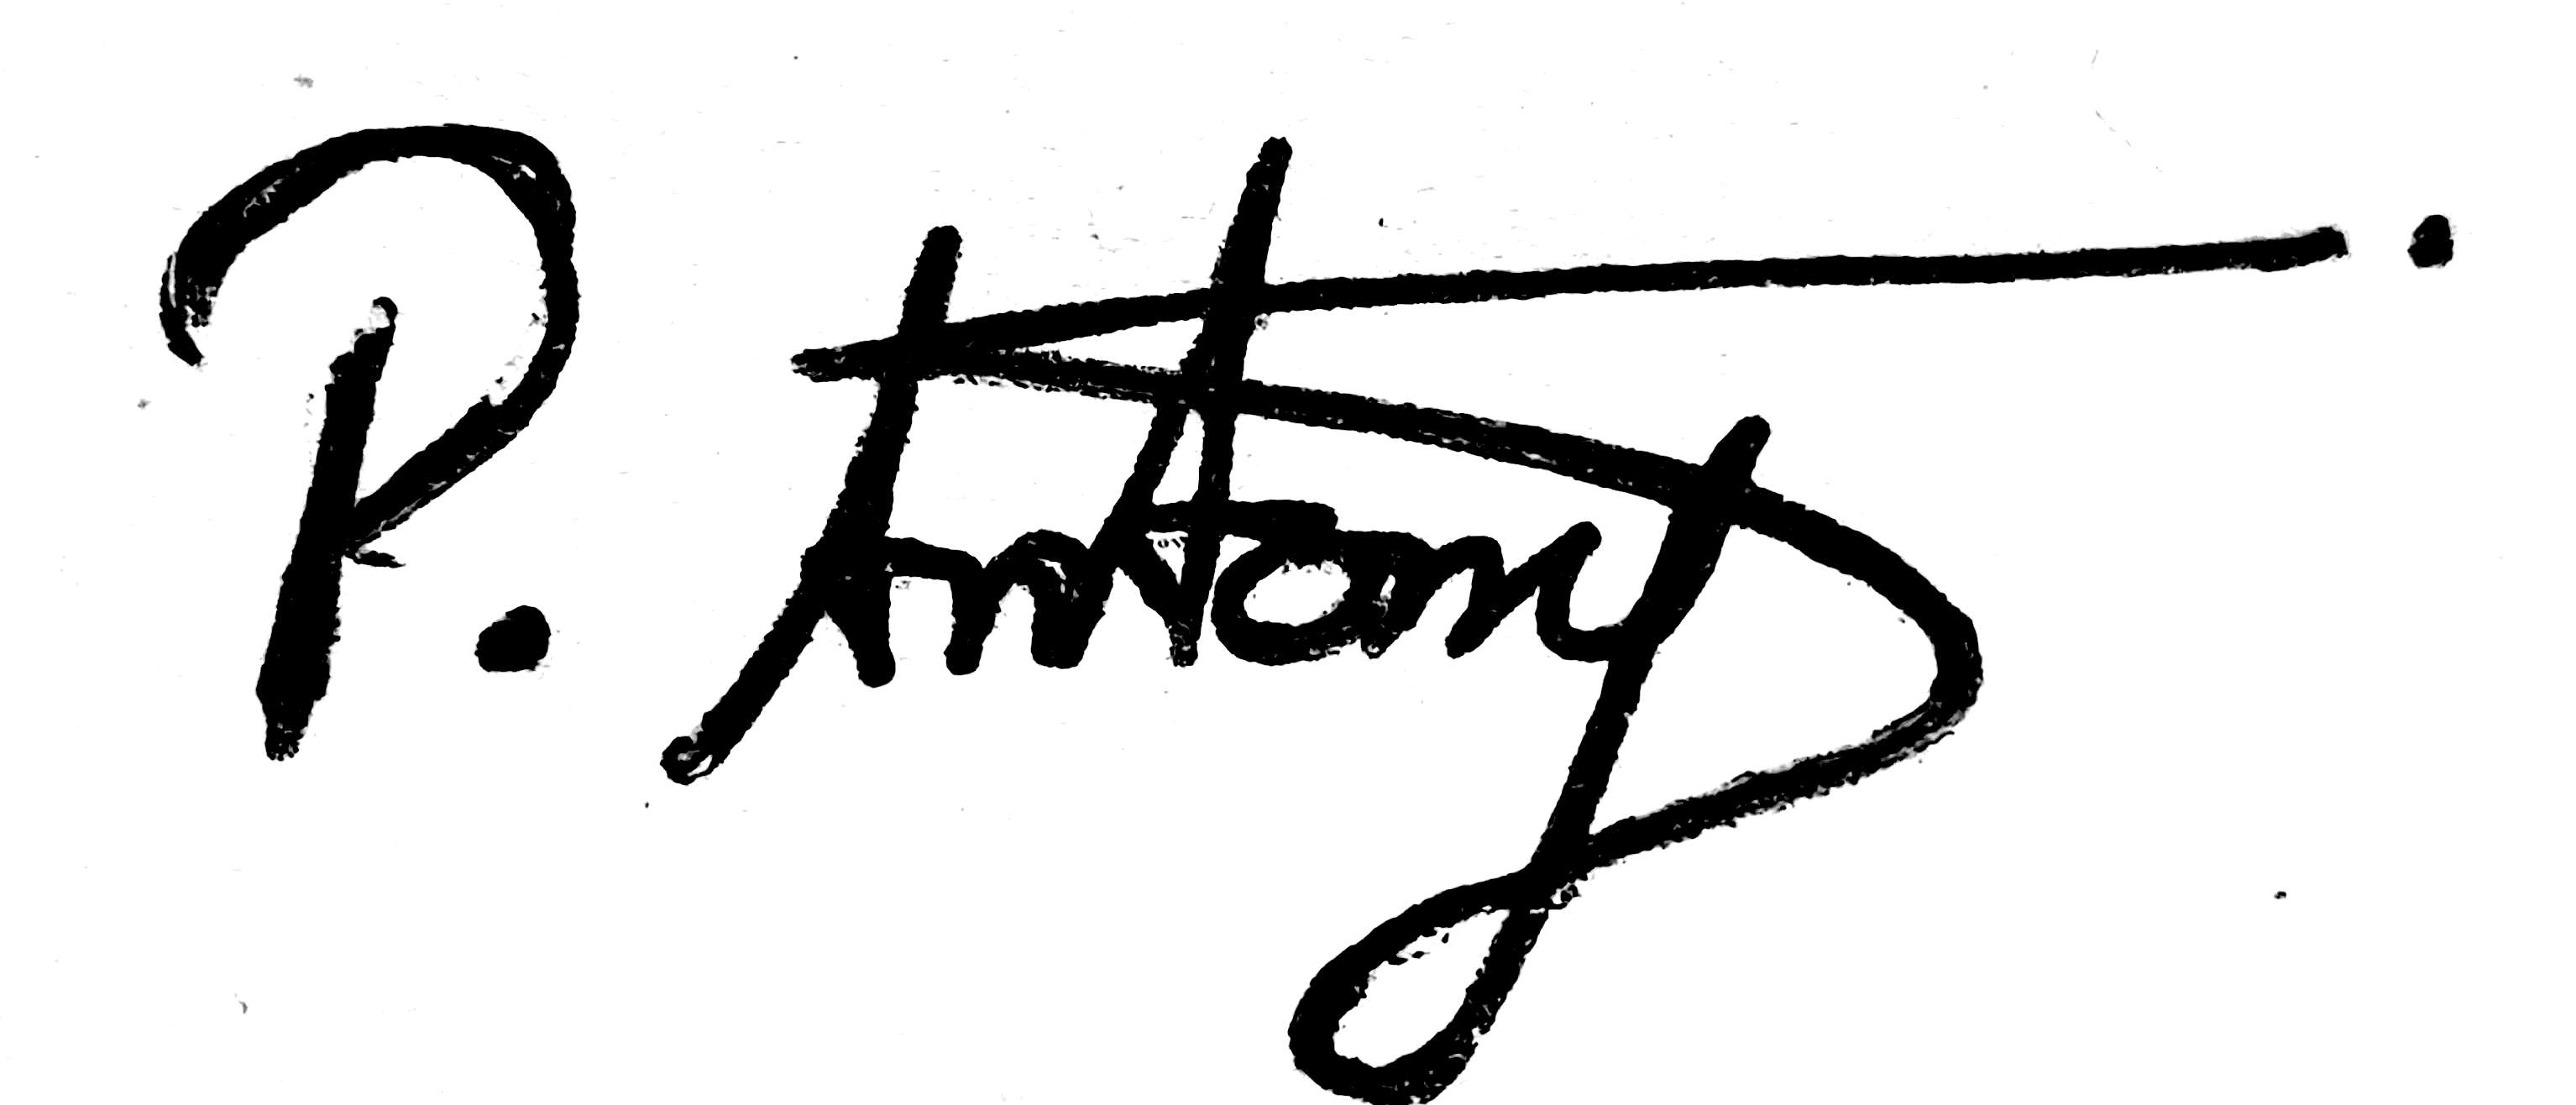 P. Antony.